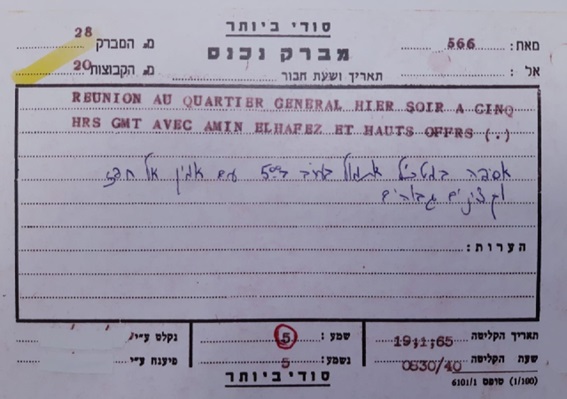 סודי ביותר
מברק נכנס
מאת: 566
מ. המברק 28
אל:
מ. הקבוצות 20
תאריך ושעת חבור
REUNION AU QUARTIER GENERAL HIER SOIR A CINQ
HRS GMT AVEC AMIN ELHAFEZ ET HAUTS OFFRS (.)
אסיפה במטכ"ל אתמול בערב ב-5 עם אמין אל חפז
וקצינים גבוהים
הערות:
תאריך הקליטה 19;1;65
שעת הקליטה 0530/40
שמע: 5
נשמע: 5
נקלט ע"י
פיענח ע"י
סודי ביותר
(1/100) טופס 6101/1